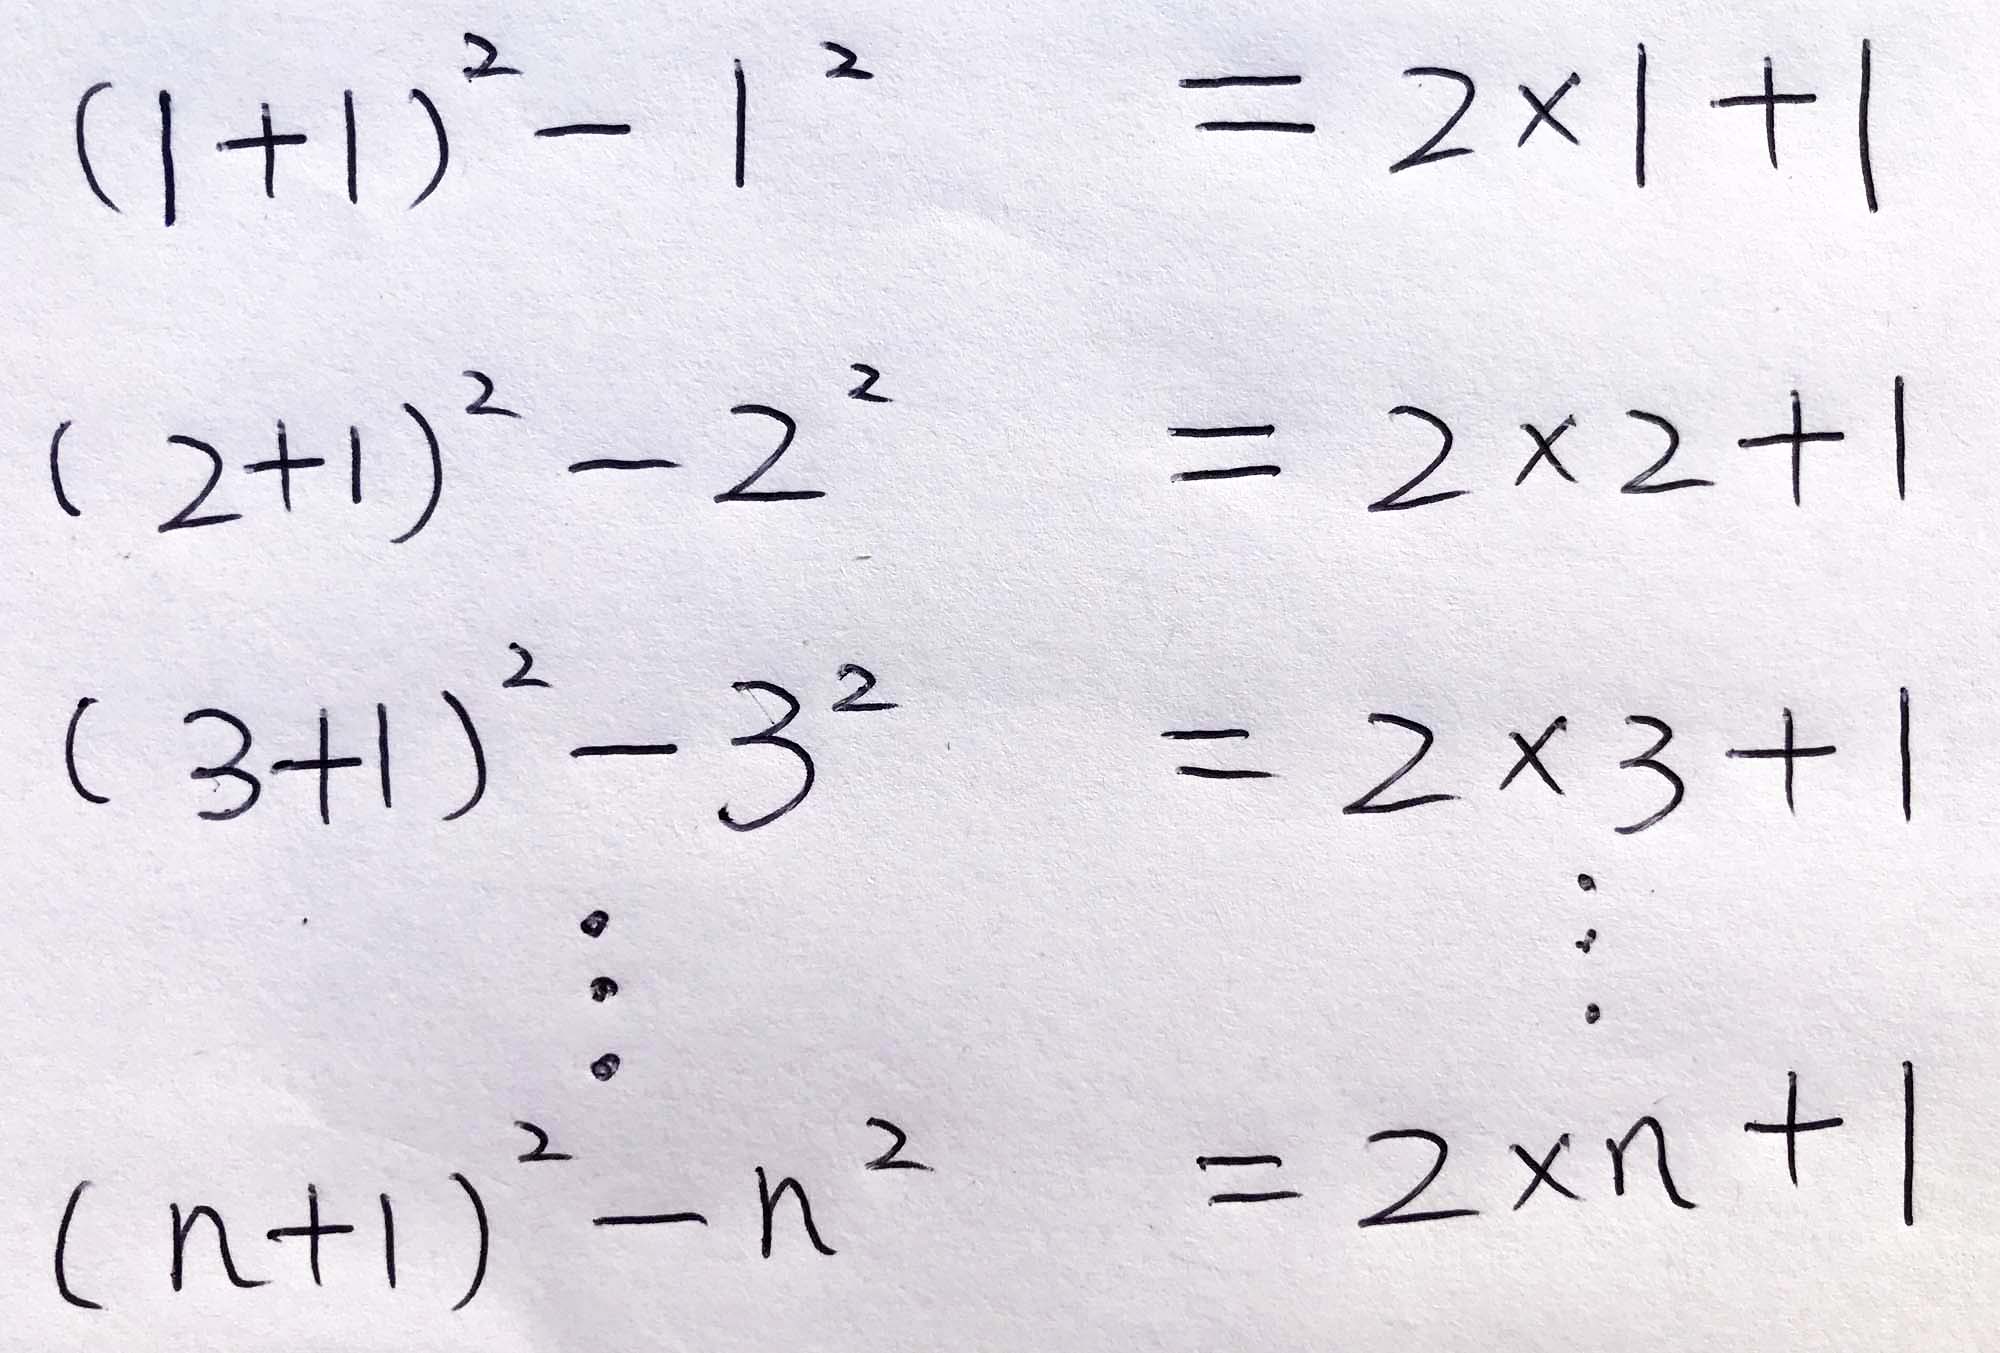 (1+1)² - 1² = 2×1+1
(2+1)² - 2² = 2×2+1
(3+1)² - 3² = 2×3+1
⋮ ⋮
(n+1)² - n² = 2×n+1